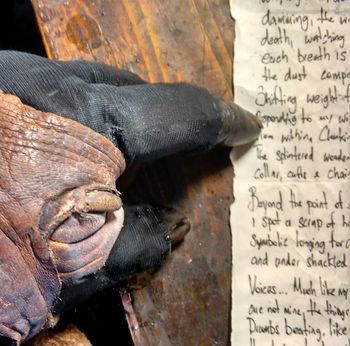 damaging, the wo
death, watching
each breath is
the dust compo
Shifting weight f
responding to my wi
within, Choki
The splintered wooden
Collar, cuffs & chai
Beyond the point of
I spot a scrap of he
Symbolic longing for
and under shackled
Voices... Much like my
are not mine, the things
Drumbs beating, like